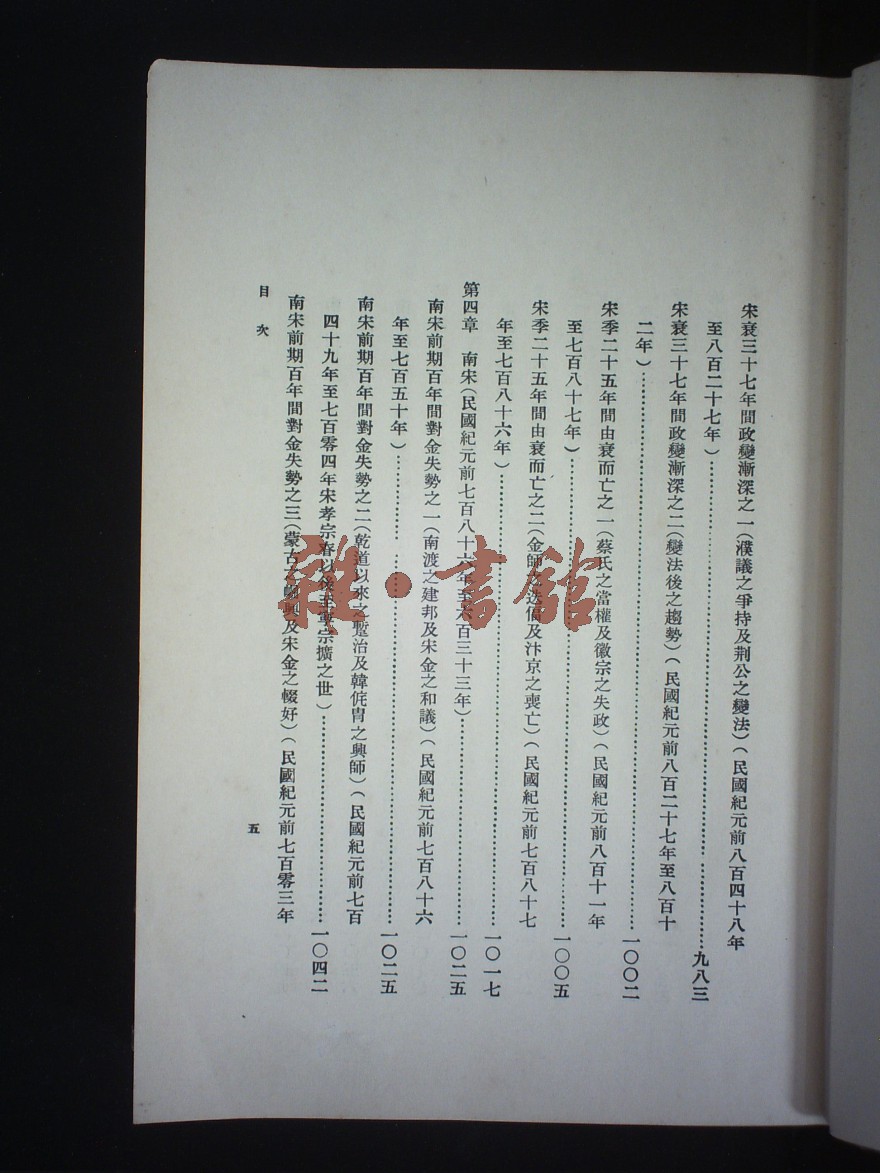 宋衰三十七年間政變漸深之一（濮議之爭持及荆公之變法）（民國紀元前八百四十八年
至八百二十七年）……………………九八三
宋衰三十七年間政變漸深之二（變法後之趨勢）（民國紀元前八百二十七年至八百十
二年）……………………一〇〇二
宋季二十五年間由衰而亡之一（蔡氏之當權及徽宗之失政）（民國紀元前八百十一年
至七百八十七年）……………………一〇〇五
宋季二十五年間由衰而亡之二（金師之迭偪及汴京之喪亡）（民國紀元前七百八十七
年至七百八十六年）……………………一〇一七
第四章　南宋（民國紀元前七百八十六年至六百三十三年）……………………一〇二五
南宋前期百年間對金失勢之一（南渡之建邦及宋金之和議）（民國紀元前七百八十六
年至七百五十年）……………………一〇二五
南宋前期百年間對金失勢之二（乾道以來之蹔治及韓侂冑之興師）（民國紀元前七百
四十九年至七百零四年宋孝宗眘以後至寧宗擴之世）……………………一〇四二
南宋前期百年間對金失勢之三（蒙古之崛興及宋金之輟好）（民國紀元前七百零三年
目次
五
雅·書館